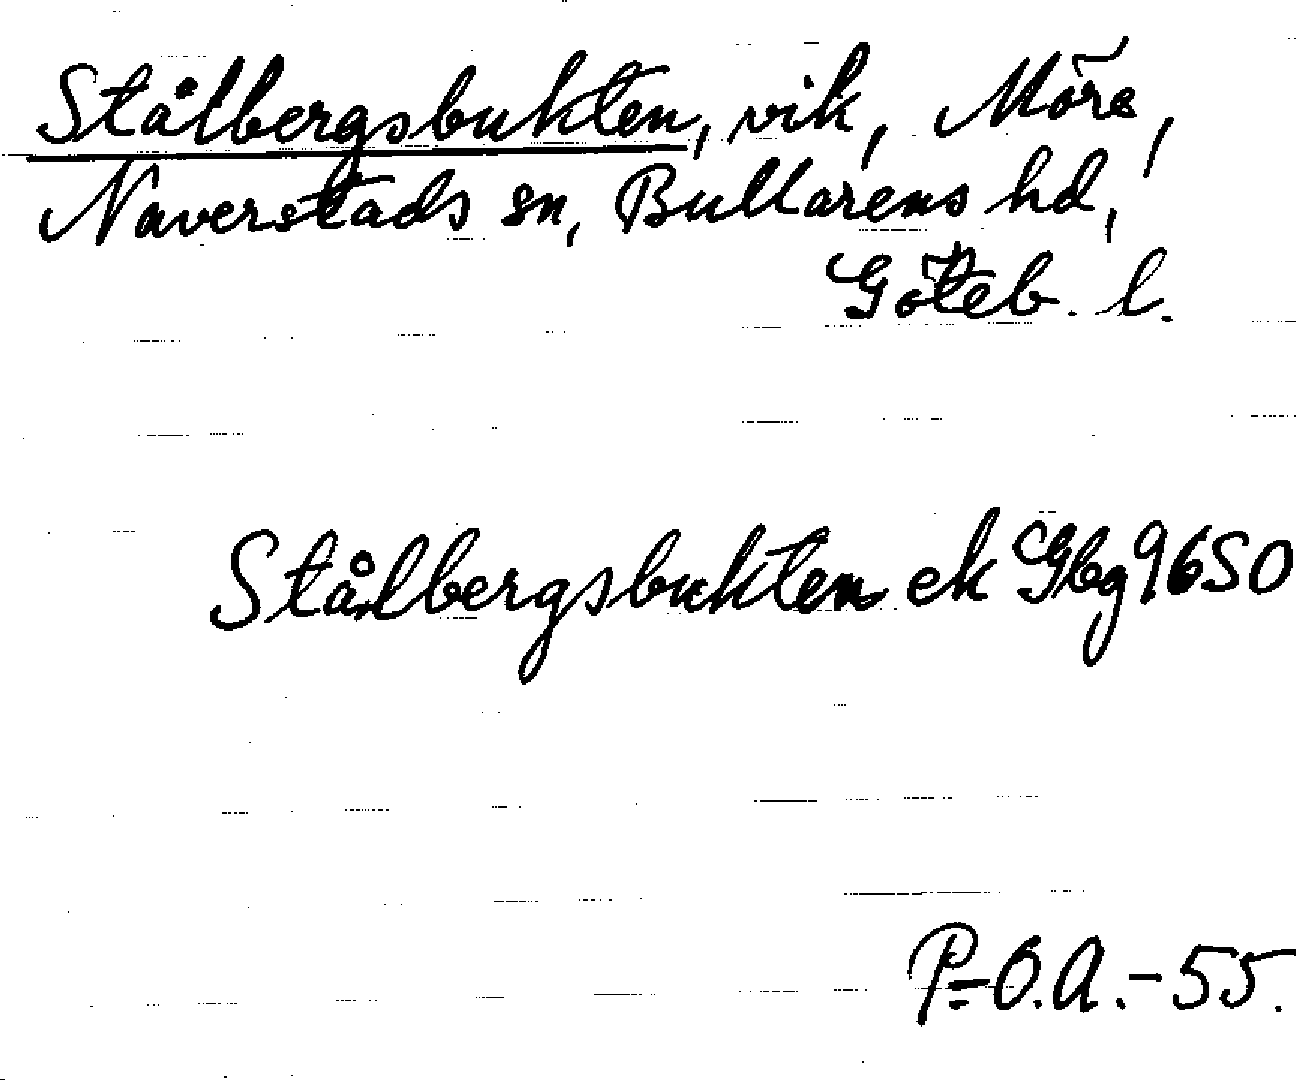 Stålbergsbukten, vik, Möre,
Naverstads sn, Bullarens hd,
Göteb. l.
Stålbergsbukten ek Gbg 9650
P-O.A.-55.